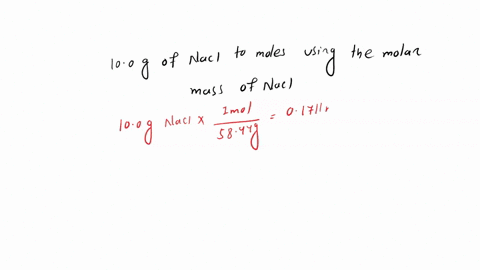 10.0 g of NaCl to moles using the molar
mass of NaCl
10.0g NaCl x 1mol / 58.44g = 0.1711